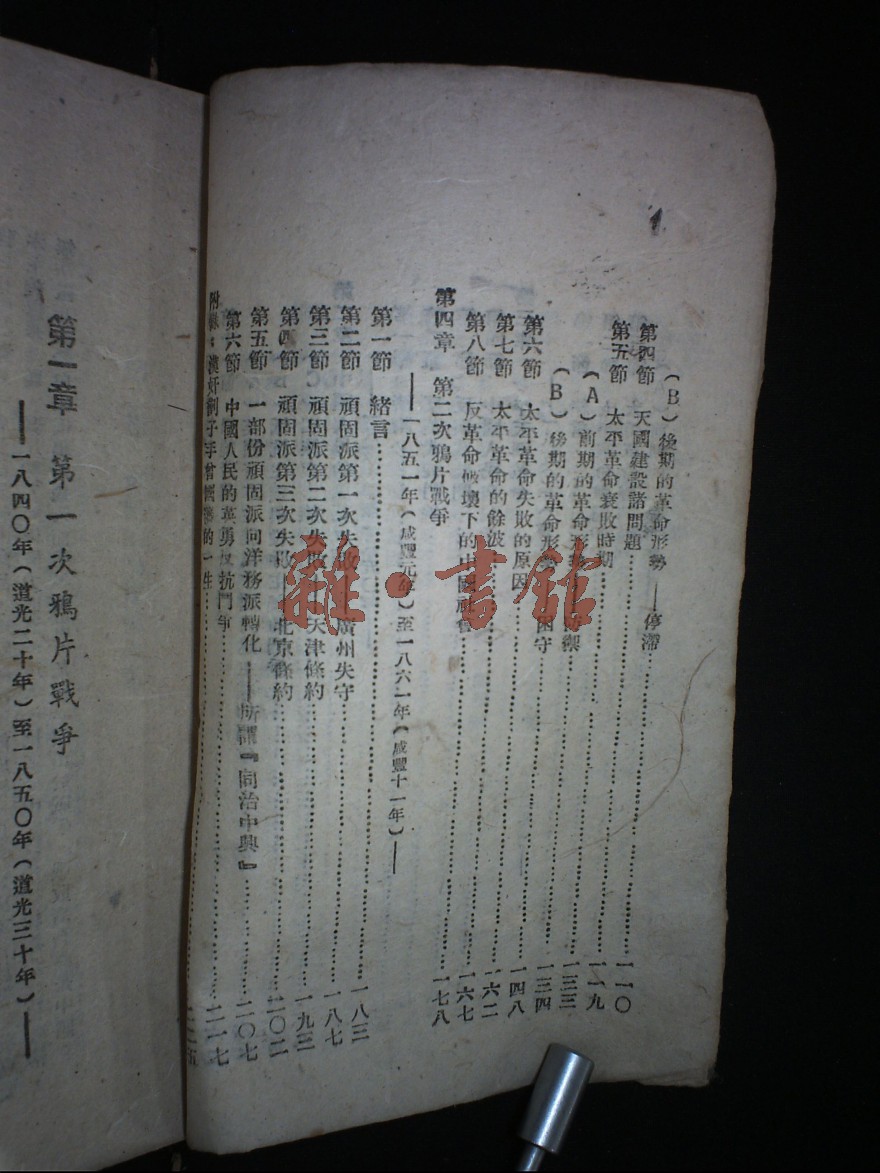 (B)後期的革命形勢——停滯
第四節 天國建設諸問題……一一〇
第五節 太平革命衰敗時期……一一九
(A)前期的革命形勢……一三三
(B)後期的革命形勢……困守……一三四
第六節 太平革命失敗的原因……一四八
第七節 太平革命的餘波……一六二
第八節 反革命破壞下的中國社會……一六七
第四章 第二次鴉片戰爭……一七八
——一八五一年(咸豐元年)至一八六一年(咸豐十一年)——
第一節 緒言……一八三
第二節 頑固派第一次失敗 廣州失守……一八七
第三節 頑固派第二次失敗 天津條約……一九三
第四節 頑固派第三次失敗 北京條約……二〇二
第五節 一部份頑固派向洋務派轉化——所謂『同治中興』……二〇七
第六節 中國人民的英勇反抗鬥爭……二一七
附錄:漢奸劊子手曾國藩的一生
第一章 第一次鴉片戰爭
——一八四〇年(道光二十年)至一八五〇年(道光三十年)——
雜·書館